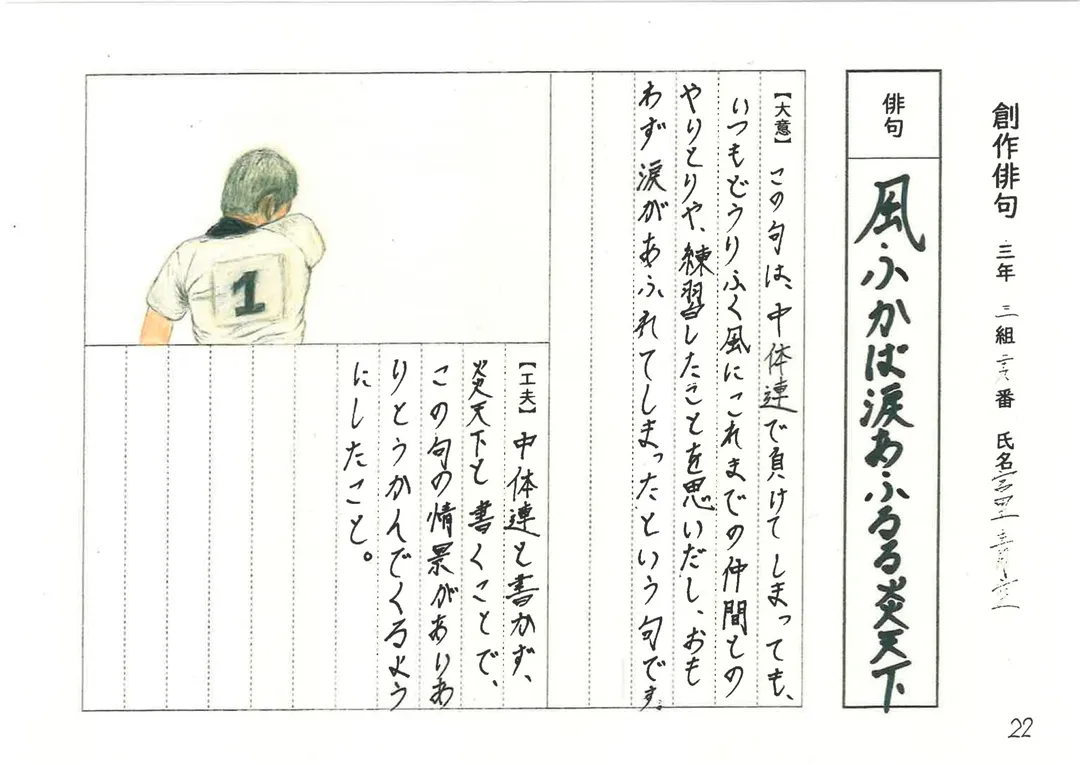 創作俳句 三年 三組 番 氏名
俳句
風ふかば涙あふるる炎天下
【大意】この句は、中体連で負けてしまっても、
いつもどうりふく風にこれまでの仲間との
やりとりや、練習したことを思いだし、おも
わず涙があふれてしまったという句です。
【工夫】中体連と書かず、
炎天下と書くことで、
この句の情景がありあ
りとうかんでくるよう
にしたこと。
1
22